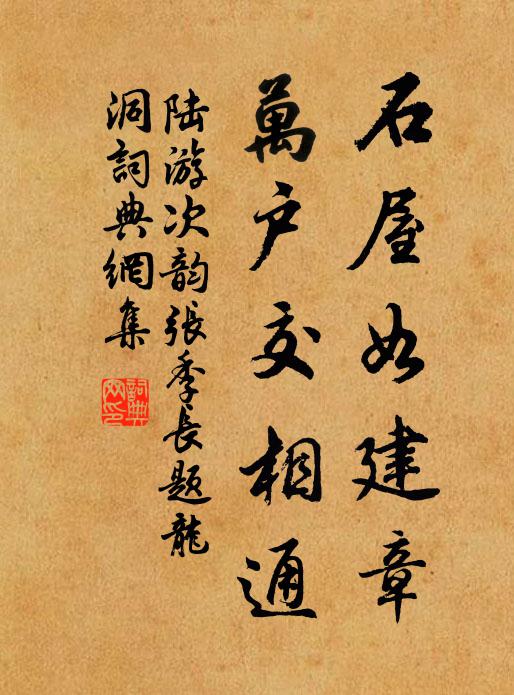 石屋如建章
萬户交相通
陆游次韵張季長題龍
洞詞典網集
詞典網印